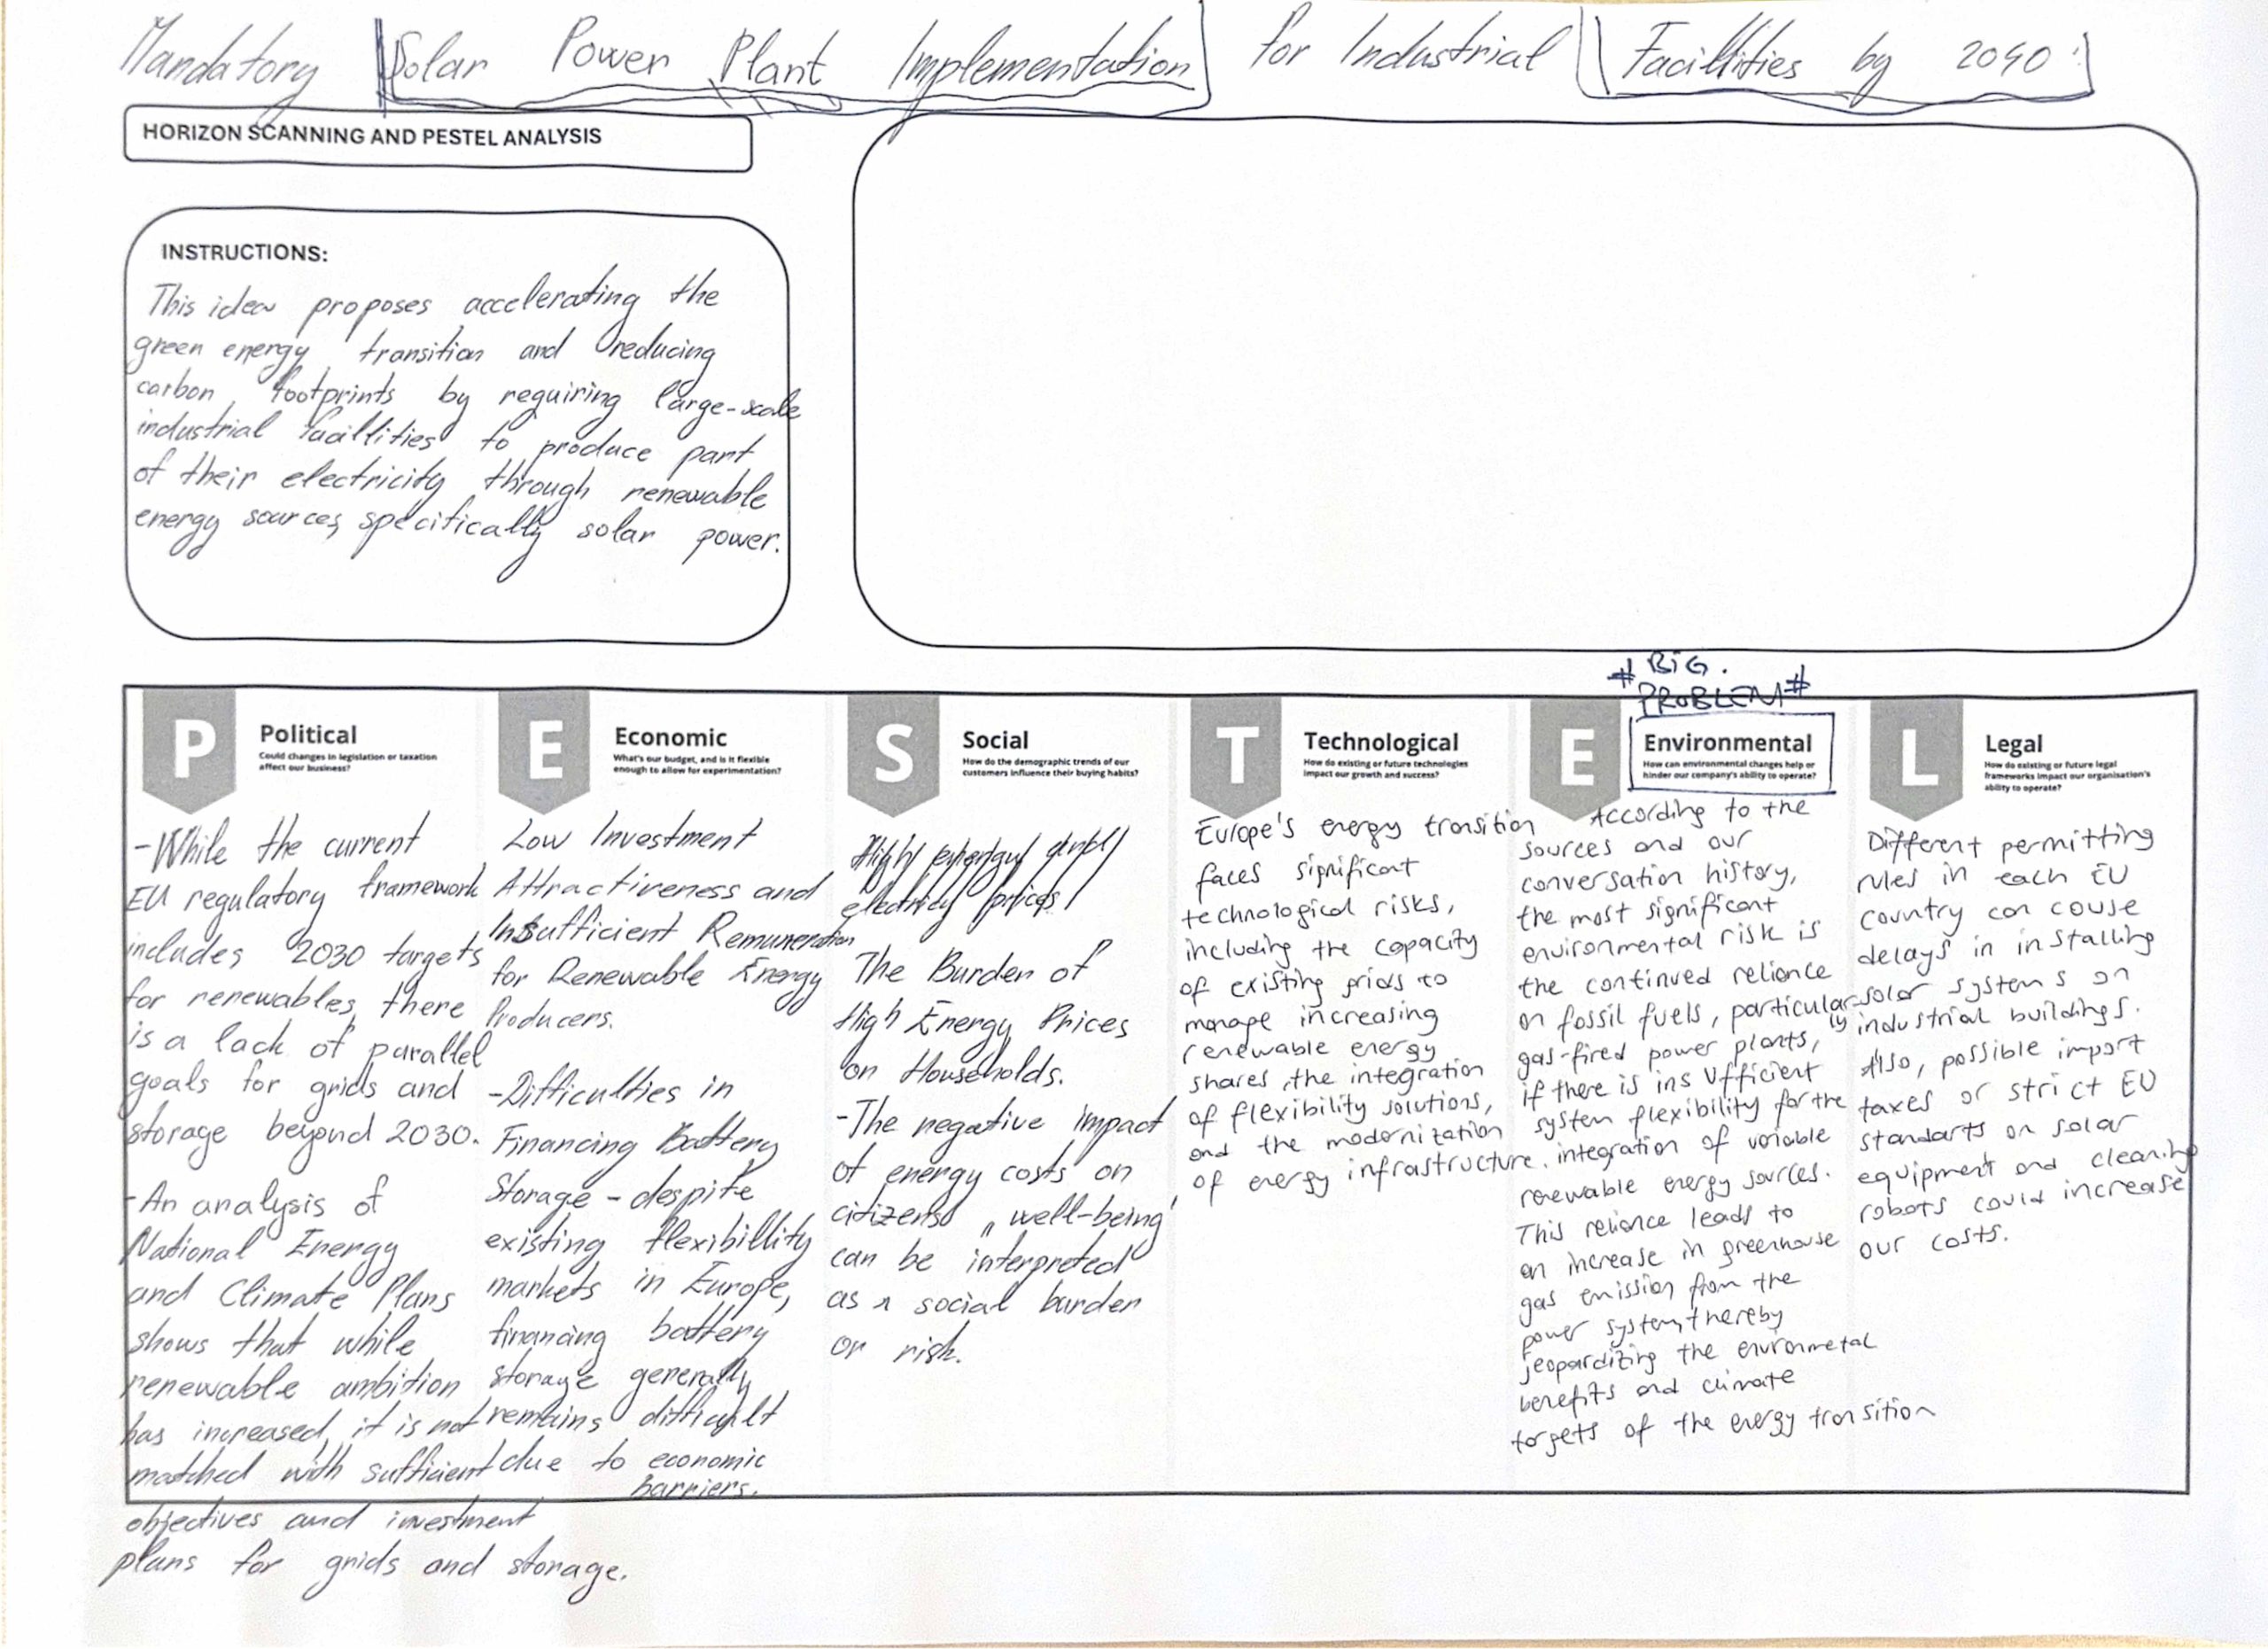 Mandatory Solar Power Plant Implementation for Industrial Facillities by 2040
HORIZON SCANNING AND PESTEL ANALYSIS
INSTRUCTIONS:
This idea proposes accelerating the
green energy transition and reducing
carbon footprints by requiring large-scale
industrial facillities to produce part
of their electricity through renewable
energy sources, specifically solar power.
# BIG.
PROBLEM #
P
Political
Could changes in legislation or taxation
affect our business?
-While the current
EU regulatory framework
includes 2030 targets
for renewables, there
is a lack of parallel
goals for grids and
storage beyond 2030.
-An analysis of
National Energy
and Climate Plans
shows that while
renewable ambition
has increased, it is not
matched with sufficient
objectives and investment
plans for grids and storage.
E
Economic
What's our budget, and is it flexible
enough to allow for experimentation?
Low Investment
Attractiveness and
Insufficient Remuneration
for Renewable Energy
Producers.
-Difficulties in
Financing Battery
Storage - despite
existing flexibillity
markets in Europe,
financing battery
storage generally
remains difficult
due to economic
barriers.
S
Social
How do the demographic trends of our
customers influence their buying habits?
High energy
electricity prices
The Burder of
High Energy Prices
on Households.
-The negative impact
of energy costs on
citizens' „well-being'
can be interpreted
as a social burder
or risk.
T
Technological
How do existing or future technologies
impact our growth and success?
Europe's energy transition
faces significant
technological risks,
including the capacity
of existing grids to
manage increasing
renewable energy
shares, the integration
of flexibility solutions,
and the modernization
of energy infrastructure.
E
Environmental
How can environmental changes help or
hinder our company's ability to operate?
According to the
sources and our
conversation history,
the most significant
environmental risk is
the continued reliance
on fossil fuels, particularly
gas-fired power plants,
if there is insufficient
system flexibility for the
integration of variable
renewable energy sources.
This reliance leads to
an increase in greenhouse
gas emission from the
power system, thereby
jeopardizing the environmetal
benefits and climate
targets of the energy transition
L
Legal
How do existing or future legal
frameworks impact our organisation's
ability to operate?
Different permitting
rules in each EU
country can couse
delays in installing
solar systems on
industrial buildings.
Also, possible import
taxes or strict EU
standarts on solar
equipment and cleaning
robots could increase
our costs.